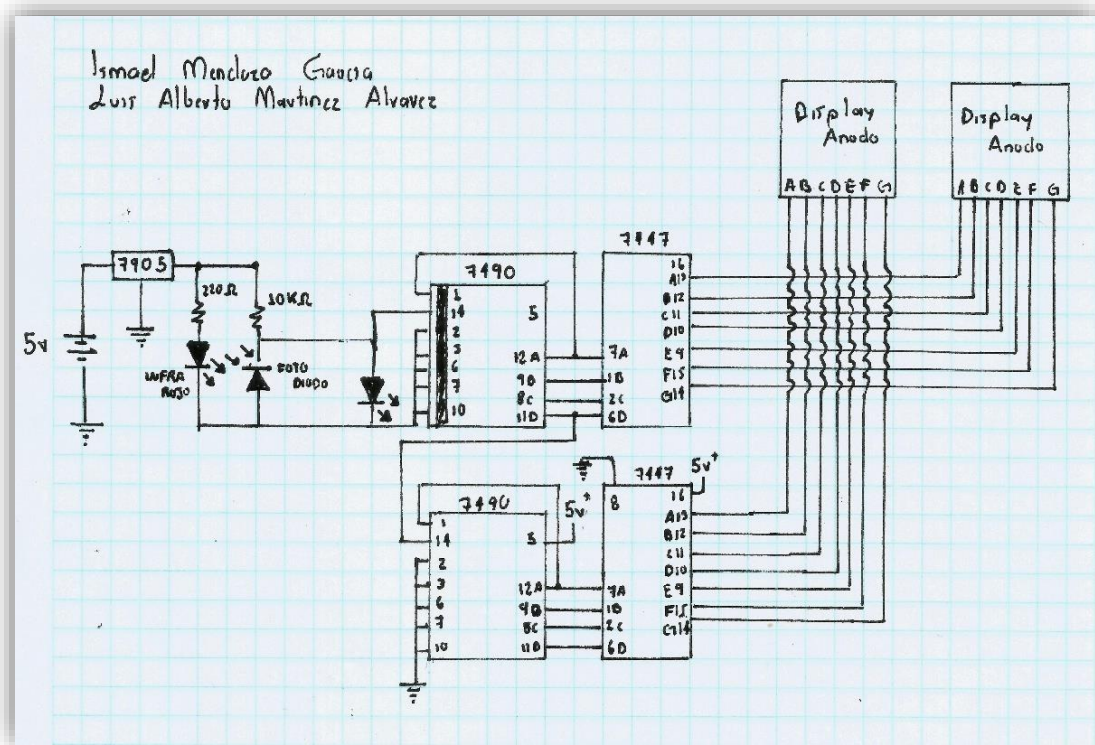 Ismael Mendoza Garcia
Luis Alberto Martinez Alvarez
Display
Anodo
A B C D E F G
Display
Anodo
A B C D E F G
7905
220Ω
10KΩ
5v
INFRA
ROJO
FOTO
DIODO
7490
1
14
2
3
6
7
10
5
12A
9B
8C
11D
7447
16
A13
B12
C11
D10
E9
F15
G14
7A
1B
2C
6D
7490
1
14
2
3
6
7
10
5v+
5
12A
9B
8C
11D
7447
5v+
8
16
A13
B12
C11
D10
E9
F15
G14
7A
1B
2C
6D